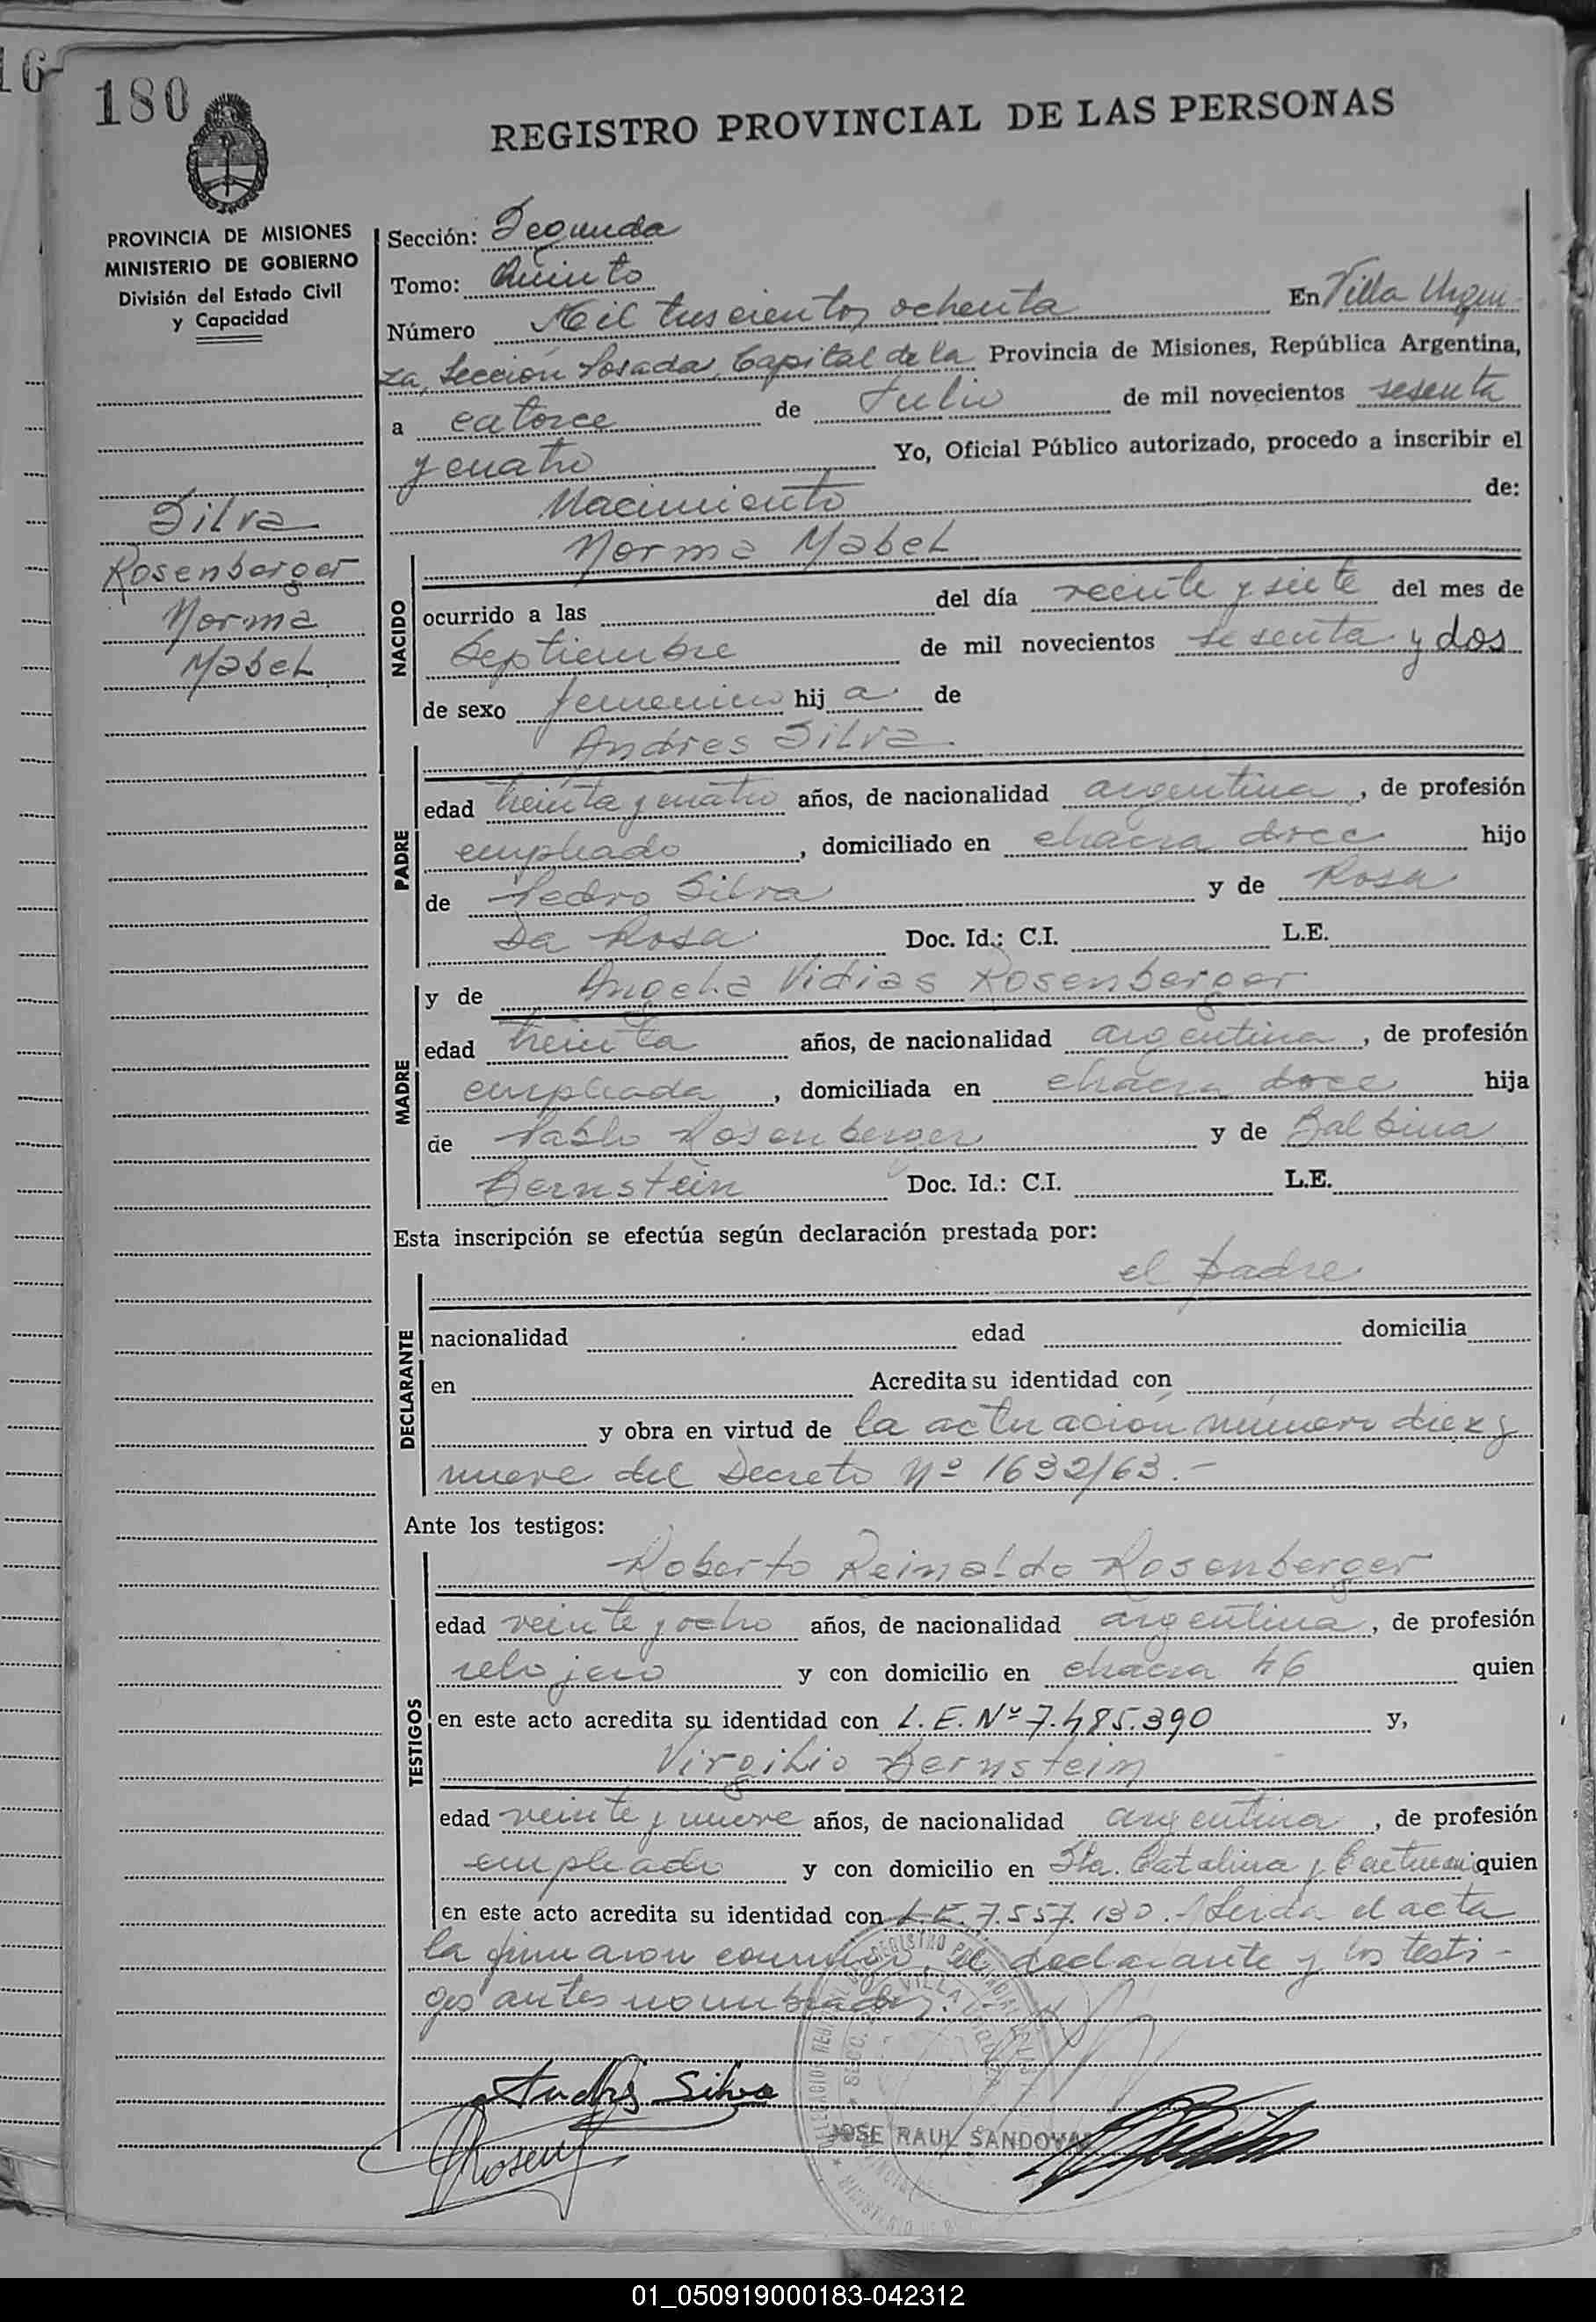 16
180
REGISTRO PROVINCIAL DE LAS PERSONAS
PROVINCIA DE MISIONES
MINISTERIO DE GOBIERNO
División del Estado Civil
y Capacidad
Silva
Rosenberger
Norma
Mabel
Sección: Segunda
Tomo: Quinto
Número Mil trescientos ochenta En Villa Urqui-
za, Sección Posadas, Capital de la Provincia de Misiones, República Argentina,
a catorce de Julio de mil novecientos sesenta
y cuatro Yo, Oficial Público autorizado, procedo a inscribir el
Nacimiento de:
NACIDO
Norma Mabel
ocurrido a las del día veinte y siete del mes de
Septiembre de mil novecientos sesenta y dos
de sexo femenino hija de
PADRE
Andres Silva
edad treinta y cuatro años, de nacionalidad argentina, de profesión
empleado, domiciliado en chacra doce hijo
de Pedro Silva y de Rosa
Da Rosa Doc. Id.: C.I. L.E.
MADRE
y de Angela Vidias Rosenberger
edad treinta años, de nacionalidad argentina, de profesión
empleada, domiciliada en chacra doce hija
de Pablo Rosenberger y de Balbina
Bernstein Doc. Id.: C.I. L.E.
Esta inscripción se efectúa según declaración prestada por:
DECLARANTE
el padre
nacionalidad edad domicilia
en Acredita su identidad con
y obra en virtud de la actuación número diez y
nueve del Decreto Nº 1632/63.-
Ante los testigos:
TESTIGOS
Roberto Reinaldo Rosenberger
edad veinte y ocho años, de nacionalidad argentina, de profesión
relojero y con domicilio en chacra 46 quien
en este acto acredita su identidad con L.E. Nº 7.485.390 y,
Virgilio Bernstein
edad veinte y nueve años, de nacionalidad argentina, de profesión
empleado y con domicilio en Sta. Catalina y quien
en este acto acredita su identidad con L.E. 7.557.130. Leida el acta
la firmaron conmigo, el declarante y los testi-
gos antes nombrados.
Andrés Silva
JOSE RAUL SANDOVAL
01_050919000183-042312